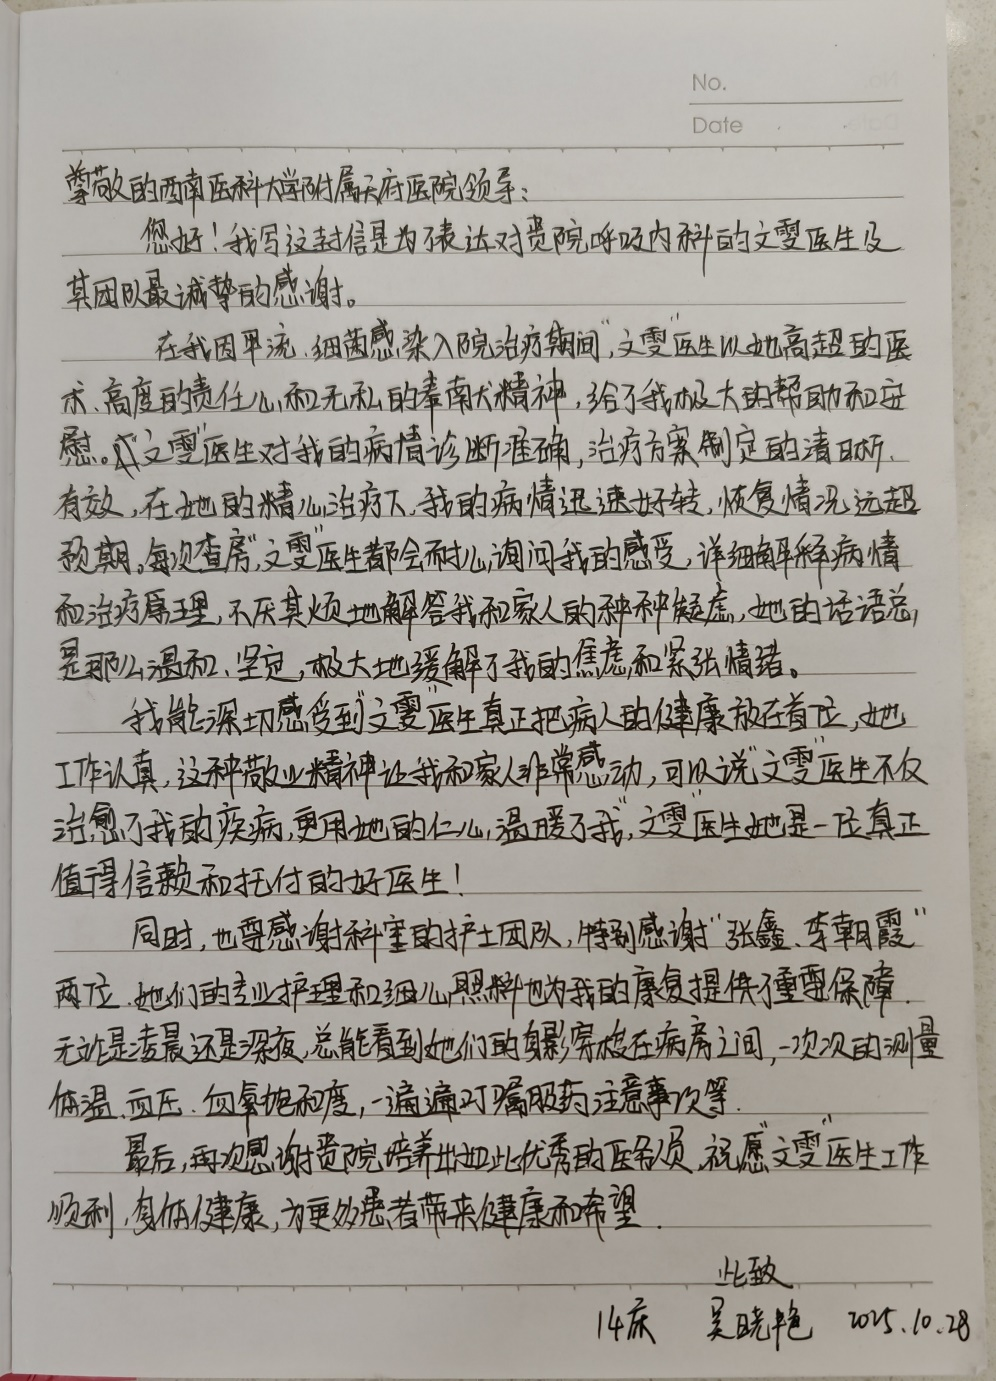 No.
Date
尊敬的西南医科大学附属天府医院领导：
您好！我写这封信是为了表达对贵院呼吸内科的文雯医生及
其团队最诚挚的感谢。
在我因甲流、细菌感染入院治疗期间，"文雯"医生以她高超的医
术、高度的责任心和无私的奉献精神，给了我极大的帮助和安
慰。"文雯"医生对我的病情诊断准确，治疗方案制定的清晰、
有效，在她的精心治疗下，我的病情迅速好转，恢复情况远超
预期。每次查房，"文雯"医生都会耐心询问我的感受，详细解释病情
和治疗原理，不厌其烦地解答我和家人的种种疑虑，她的话语总
是那么温和、坚定，极大地缓解了我的焦虑和紧张情绪。
我能深切感受到"文雯"医生真正把病人的健康放在首位，她
工作认真，这种敬业精神让我和家人非常感动，可以说"文雯"医生不仅
治愈了我的疾病，更用她的仁心温暖了我，"文雯"医生她是一位真正
值得信赖和托付的好医生！
同时，也尊感谢科室的护士团队，特别感谢"张鑫、李朝霞"
两位，她们的专业护理和细心照料也为我的康复提供了重要保障。
无论是凌晨还是深夜，总能看到她们的身影穿梭在病房之间，一次次的测量
体温、血压、血氧饱和度，一遍遍叮嘱服药注意事项等。
最后，再次感谢贵院培养出如此优秀的医务员，祝愿"文雯"医生工作
顺利，身体健康，为更多患者带来健康和希望。
此致
14床 吴晓艳 2025.10.28